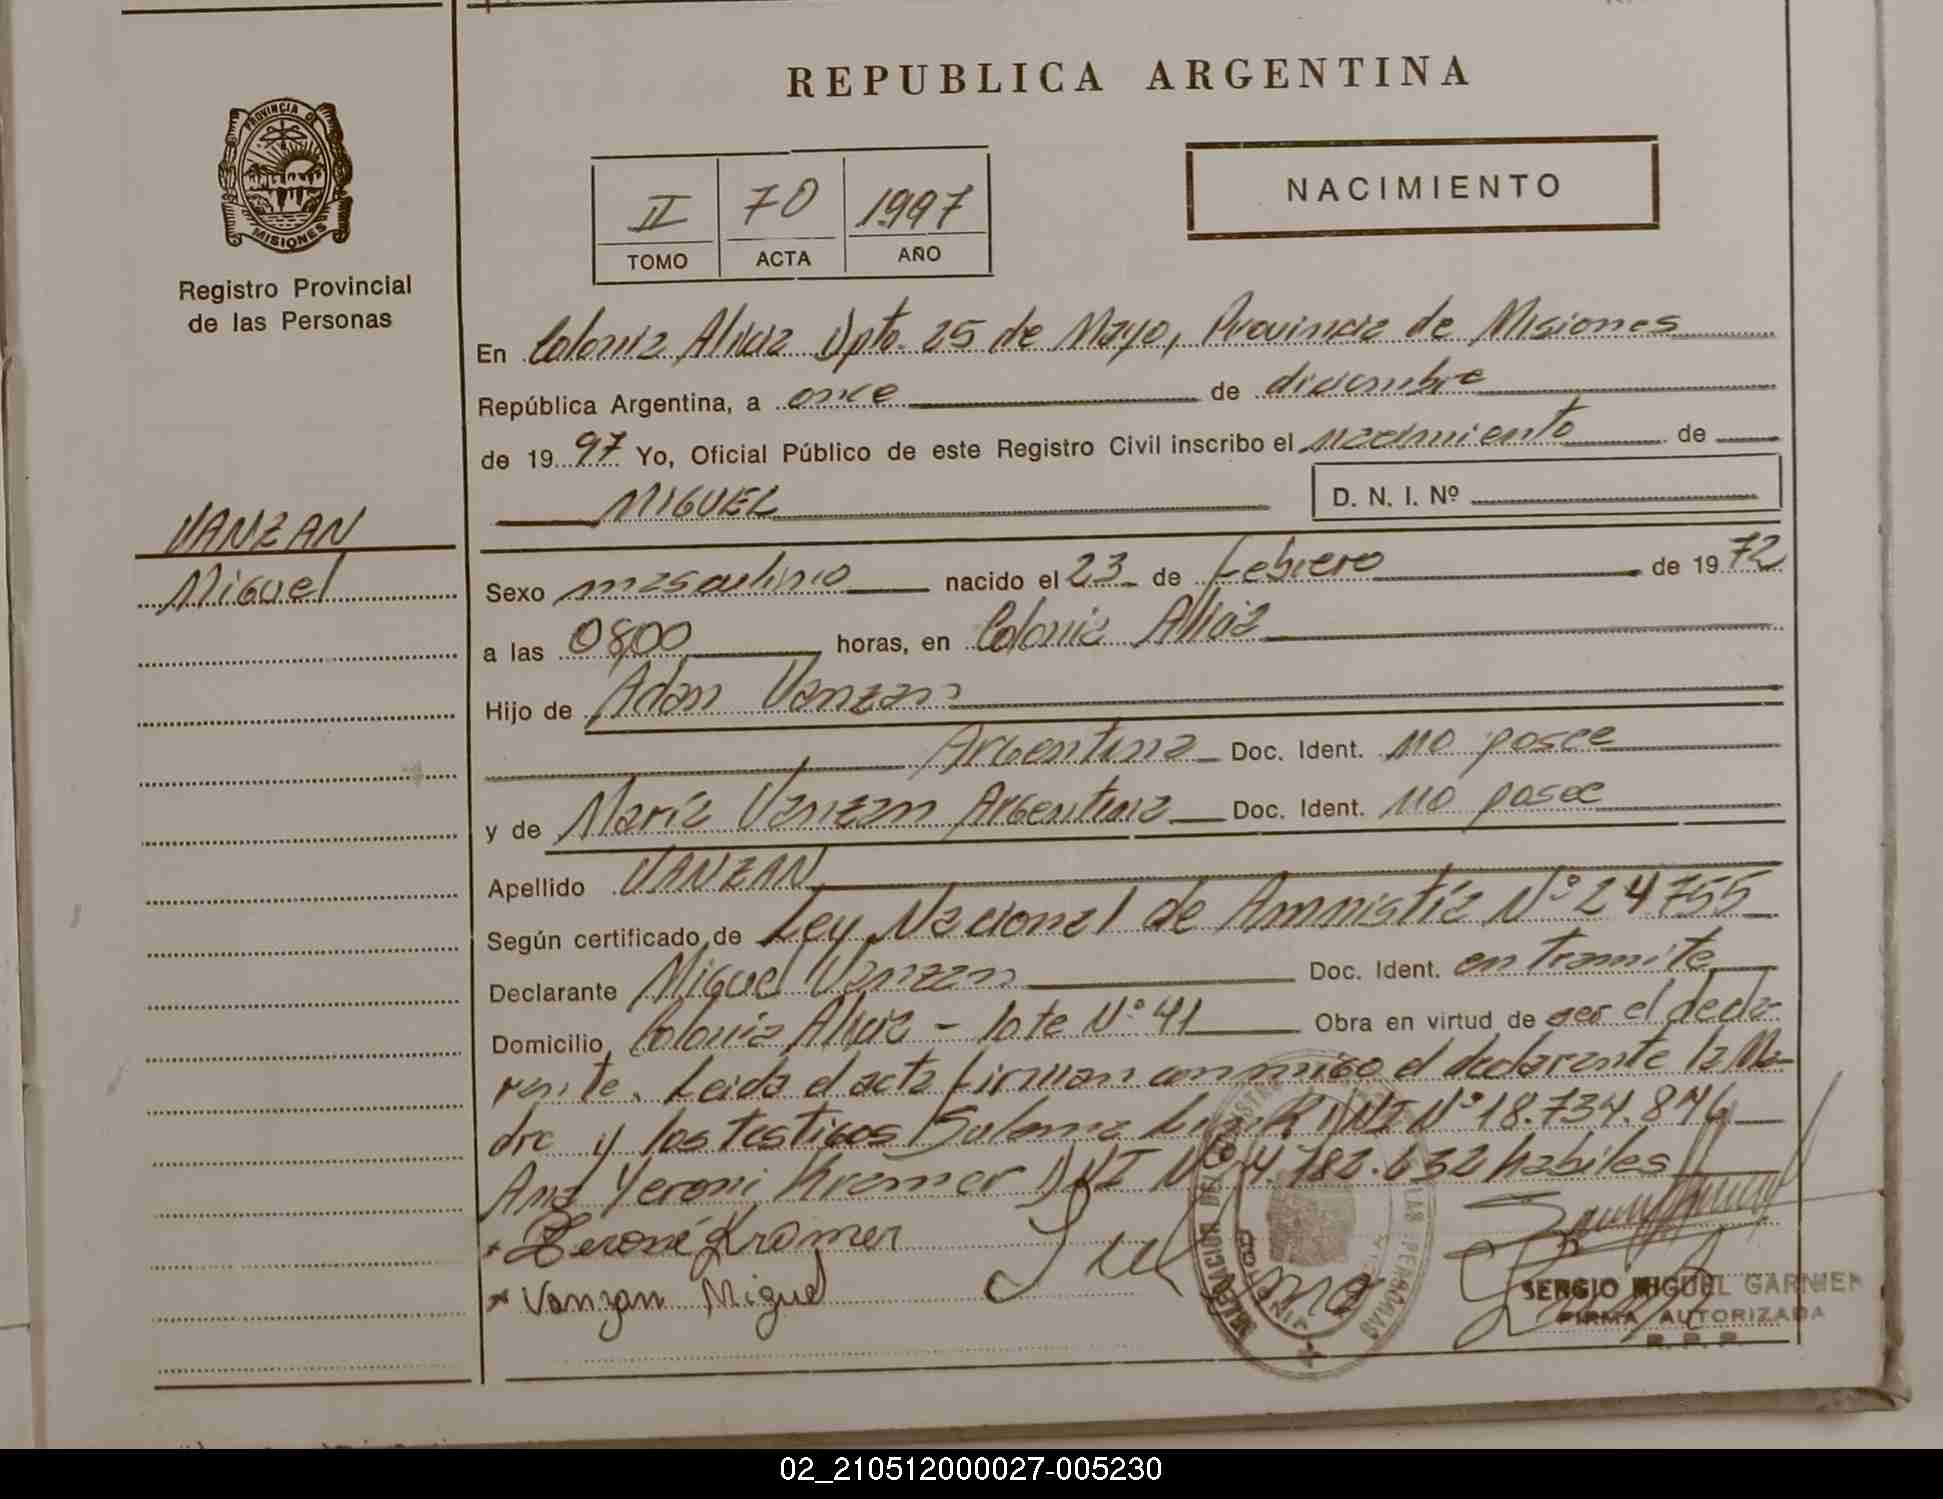 REPUBLICA ARGENTINA
PROVINCIA DE
MISIONES
Registro Provincial
de las Personas
II 70 1997
TOMO ACTA AÑO
NACIMIENTO
VANZAN
Miguel
En Colonia Alicia Dpto. 25 de Mayo, Provincia de Misiones
República Argentina, a once de diciembre
de 1997 Yo, Oficial Público de este Registro Civil inscribo el nacimiento de
MIGUEL D. N. I. Nº
Sexo masculino nacido el 23 de Febrero de 1972
a las 0800 horas, en Colonia Alicia
Hijo de Adan Vanzan
Argentina Doc. Ident. no posee
y de María Vanzan Argentina Doc. Ident. no posee
Apellido VANZAN
Según certificado de Ley Nacional de Amnistía Nº 24755
Declarante Miguel Vanzan Doc. Ident. en tramite
Domicilio Colonia Alicia - lote Nº 41 Obra en virtud de ser el decla-
rante. Leida el acta firman conmigo el declarante la Ma-
dre y los testigos DNI Nº 18.734.846
Ana Yeroni Kremer DNI Nº 782.632 habiles
Kramer
Vanzan Miguel
SERGIO MIGUEL GARNIER
FIRMA AUTORIZADA
R. P. P.
02_210512000027-005230